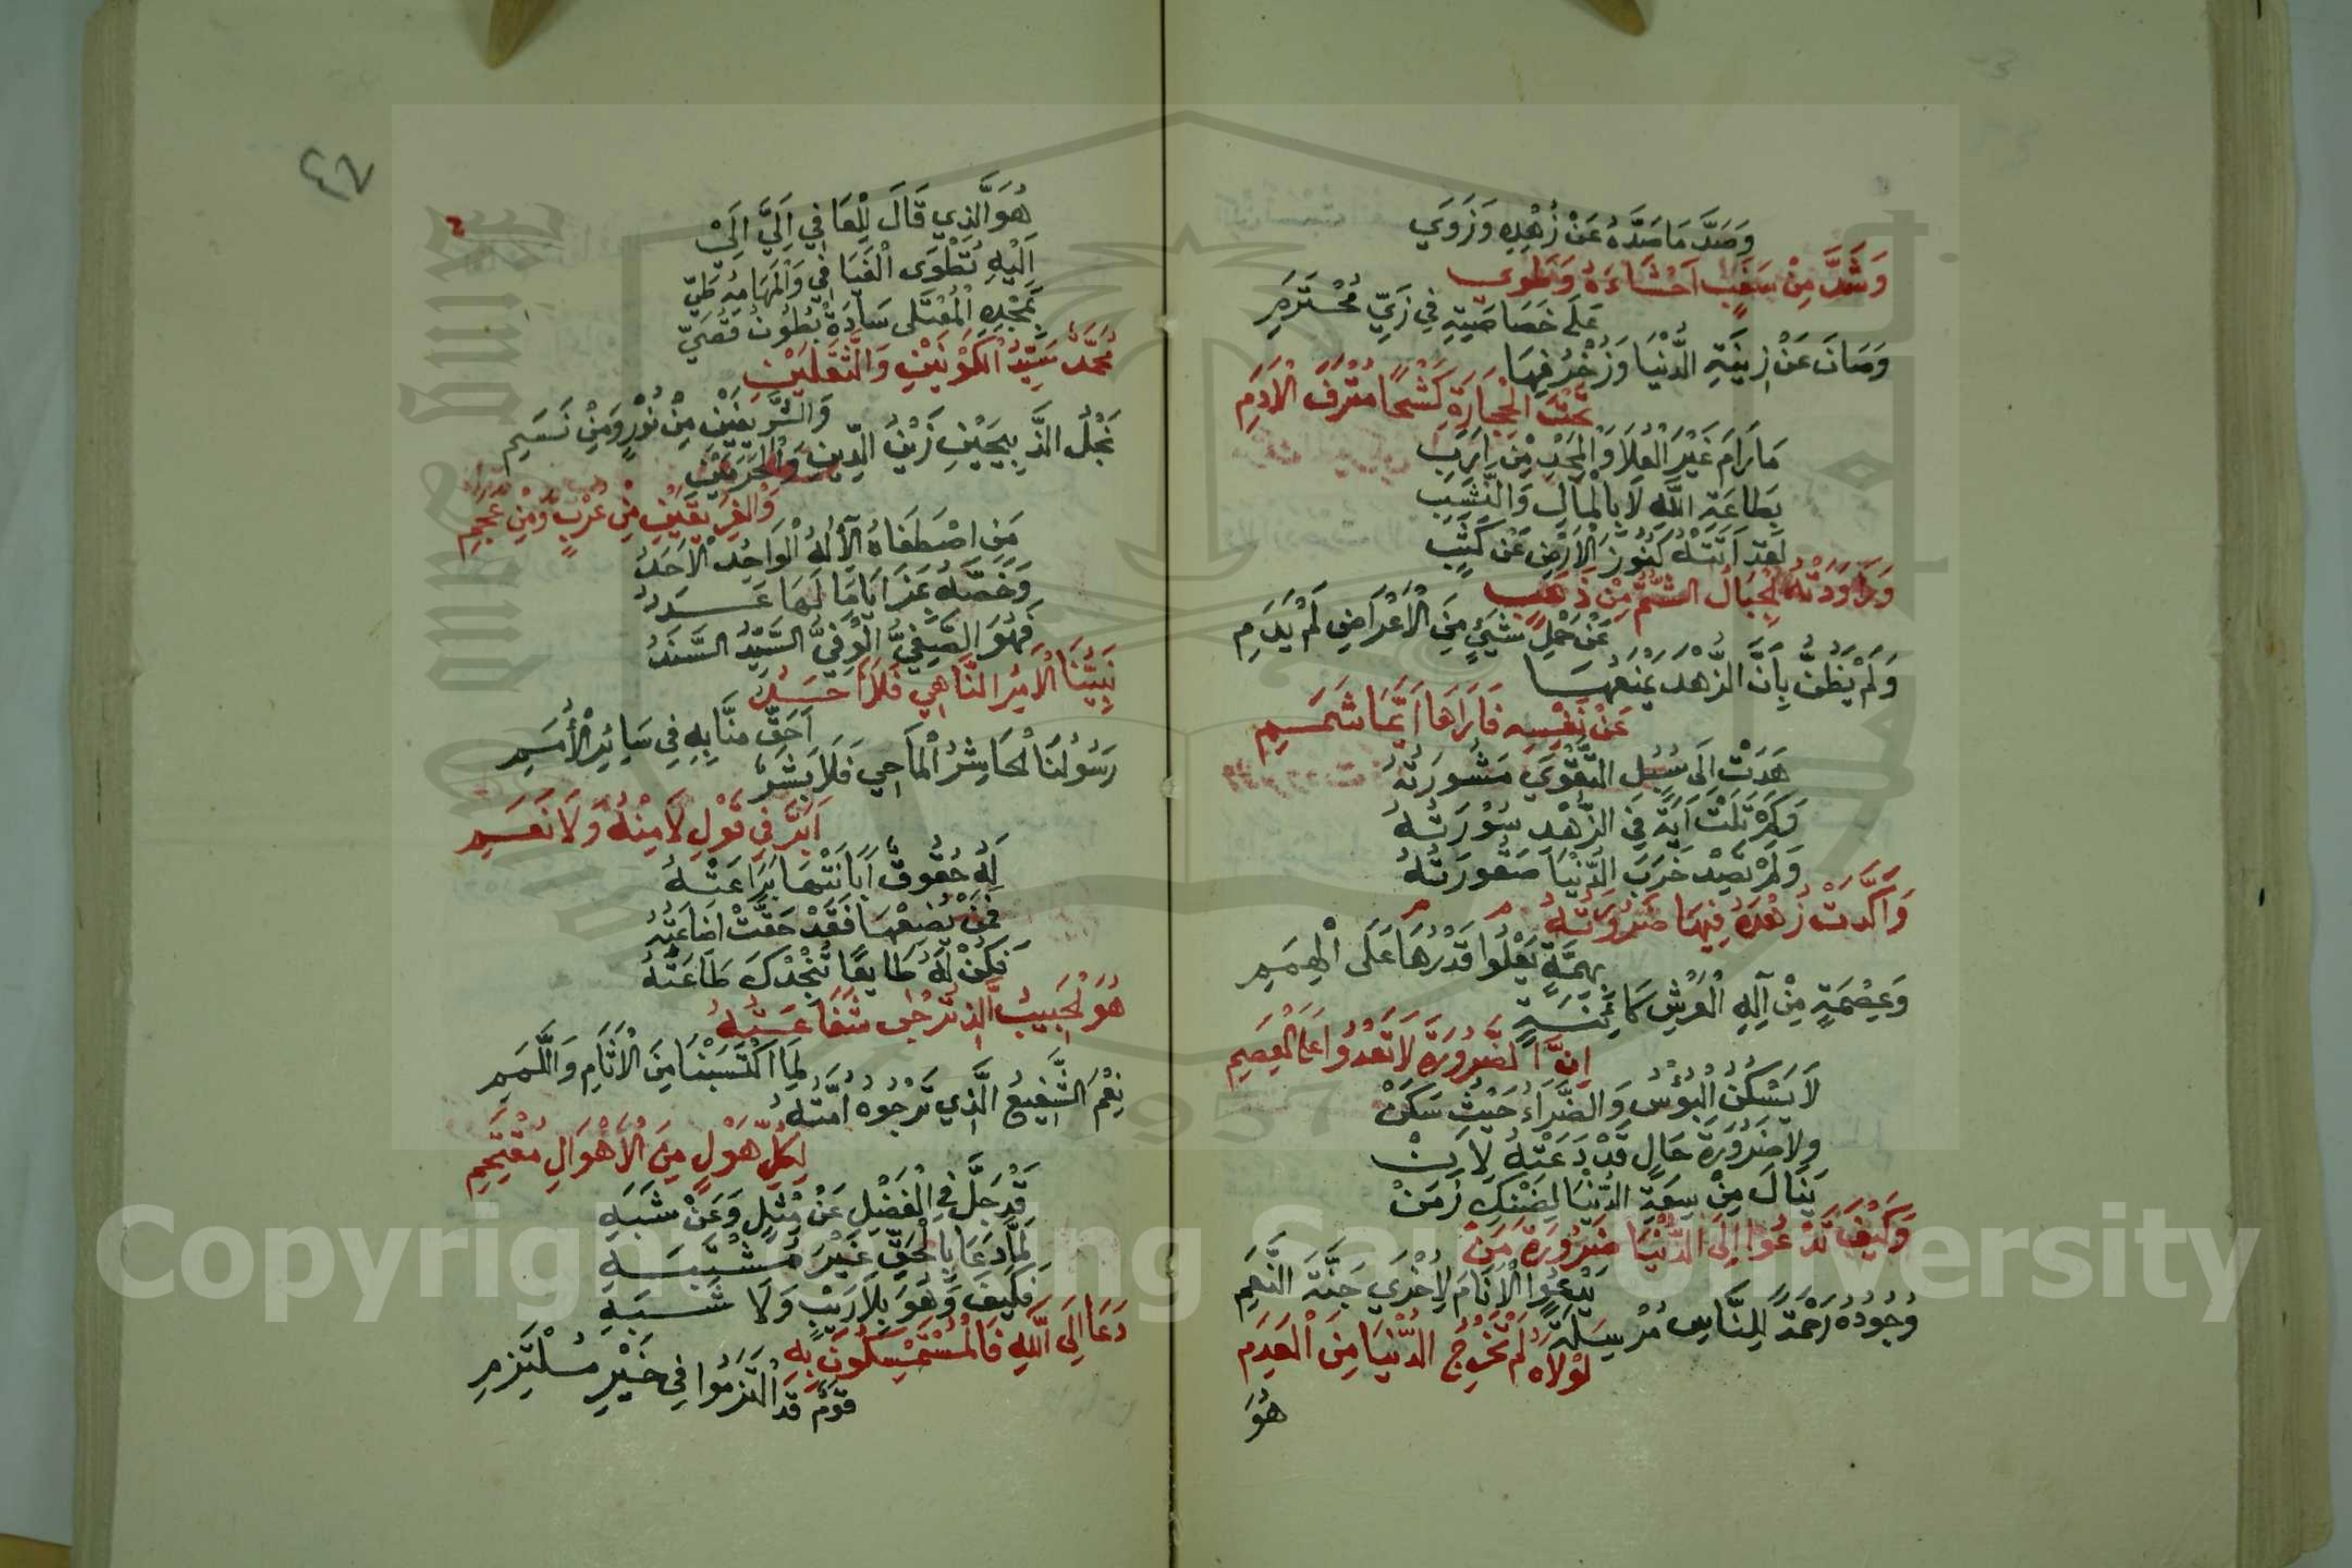 وَصَدَّ مَا صَدَّهُ عَنْ زُهْدِهِ وَزَوَي
وَشَدَّ مِنْ سَغَبٍ اَحْشَاءَهُ وَطَوي
عَلَى خَصَاصَتِهِ فِي زَيِّ مُحْتَرَمِ
وَصَانَ عَنْ زِينَةِ الدُّنْيَا وَزُخْرُفِهَا
تَحْتَ الْحِجَارَةِ كَشْحًا مُتْرَفَ الْاَدَمِ
مَارَامَ غَيْرَ الْعُلَا وَالْمَجْدِ مِنْ اَرَبِ
بِطَاعَةِ اللَّهِ لَا بِالْمَالِ وَالنَّشَبِ
لَقَد اَتَتْهُ كُنُوزُ الْاَرْضِ عَنْ كَثَبٍ
وَرَاوَدَتْهُ الْجِبَالُ الشُّمُّ مِنْ ذَهَبٍ
عَنْ حَمْلِ شَيْءٍ مِنَ الْاَعْرَاضِ لَمْ يَدُمِ
وَلَمْ يَظُنَّ بِاَنَّ الزُّهْدَ يَمْنَعُهَا
عَنْ نَفْسِهِ فَاَرَاهَا اَيَّمَا شَمَمِ
هَدَتْ اِلَى سُبُلِ التَّقْوَي مَشُورَتُهُ
وَكَمْ تَلَتْ آيَةً فِي الزُّهْدِ سُورَتُهُ
وَلَمْ تَصِدْ خَرَبَ الدُّنْيَا صَقُورَتُهُ
وَاَكَّدَتْ زُهْدَهُ فِيهَا ضَرُورَتُهُ
بِهِمَّةٍ يَعْلُوا قَدْرُهَا عَلَى الْهِمَمِ
وَعِصْمَةٍ مِنْ اِلَهِ الْعَرْشِ كَائِنَةٍ
اِنَّ الضَّرُورَةَ لَا تَعْدُوا عَلَى الْعِصَمِ
لَا يَسْكُنُ الْبُؤْسُ وَالضَّرَاءُ حَيْثُ سَكَنْ
وَلَا ضَرُورَةَ حَالٍ قَدْ دَعَتْهُ لِاَنْ
يَنَالَ مِنْ سِعَةِ الدُّنْيَا لِضَنْكِ زَمَنْ
وَكَيْفَ تَدْعُوا اِلَى الدُّنْيَا ضَرُورَةُ مَنْ
يَدْعُوا الْاَنَامَ لِاُخْرَي جَنَّةَ النِّعَمِ
وُجُودُهُ رَحْمَةً لِلنَّاسِ مُرْسَلَةً
لَوْلَاهُ لَمْ تَخْرُجِ الدُّنْيَا مِنَ الْعَدَمِ
هُوَ
٤٧
هُوَ الَّذِي قَالَ لِلْعَافِي اِلَيَّ اِلَيْ
اِلَيْهِ تُطْوَى الْفَيَافِي وَالْمَهَامِهُ طَيّ
بِمَجْدِهِ الْمُعْتَلَى سَادَةْ بُطُونُ قُصَيّ
مُحَمَّدٌ سَيِّدُ الْكَوْنَيْنِ وَالثَّقَلَيْنِ
وَالشَّرِيفَيْنِ مِنْ نُورٍ وَمِنْ نَسَمِ
نَجْلُ الذَّبِيحَيْنِ زَيْنُ الدِّينِ وَالْحَرَمَيْنِ
وَالْفَرِيقَيْنِ مِنْ عُرْبٍ وَمِنْ عَجَمِ
مَنِ اصْطَفَاهُ الْاِلَهُ الْوَاحِدُ الْاَحَدُ
وَخَصَّهُ بِمَزَايَا مَا لَهَا عَدَدُ
فَهُوَ الصَّفِيُّ الْوَفِيُّ السَّيِّدُ السَّنَدُ
نَبِيُّنَا الْآمِرُ النَّاهِي فَلَا اَحَدٌ
اَحَقَّ مِنَّا بِهِ فِي سَائِرِ الْاُمَمِ
رَسُولُنَا الْحَاشِرُ الْمَاحِي فَلَا بَشَرٌ
اَبَرَّ فِي قَوْلِ لَا مِنْهُ وَلَا نَعَمِ
لَهُ حُقُوقٌ اَبَانَتْهَا بَرَاعَتُهُ
فَمَنْ يُضِعْهَا فَقَدْ حَقَّتْ اِضَاعَتُهُ
فَكُنْ لَهُ طَايِعًا تُنْجِدْكَ طَاعَتُهُ
هُوَ الْحَبِيبُ الَّذِي تُرْجَى شَفَاعَتُهُ
لِمَا اكْتَسَبْنَا مِنَ الْآثَامِ وَاللَّمَمِ
نِعْمَ الشَّفِيعُ الَّذِي تَرْجُوهُ اُمَّتُهُ
لِكُلِّ هَوْلٍ مِنَ الْاَهْوَالِ مُقْتَحِمِ
قَدْ جَلَّ فِي الْفَضْلِ عَنْ مِثْلٍ وَعَنْ شَبَهِ
لِمَا دَعَا بِالْحَقِّ غَيْرَ مُشْتَبِهِ
فَكَيْفَ وَهُوَ بِلَا رَيْبٍ وَلَا شَبَهِ
دَعَا اِلَى اللَّهِ فَالْمُسْتَمْسِكُونَ بِهِ
قَوْمٌ قَدِ الْتَزَمُوا فِي خَيْرِ مُلْتَزَمِ
Copyright © King Saud University
1957